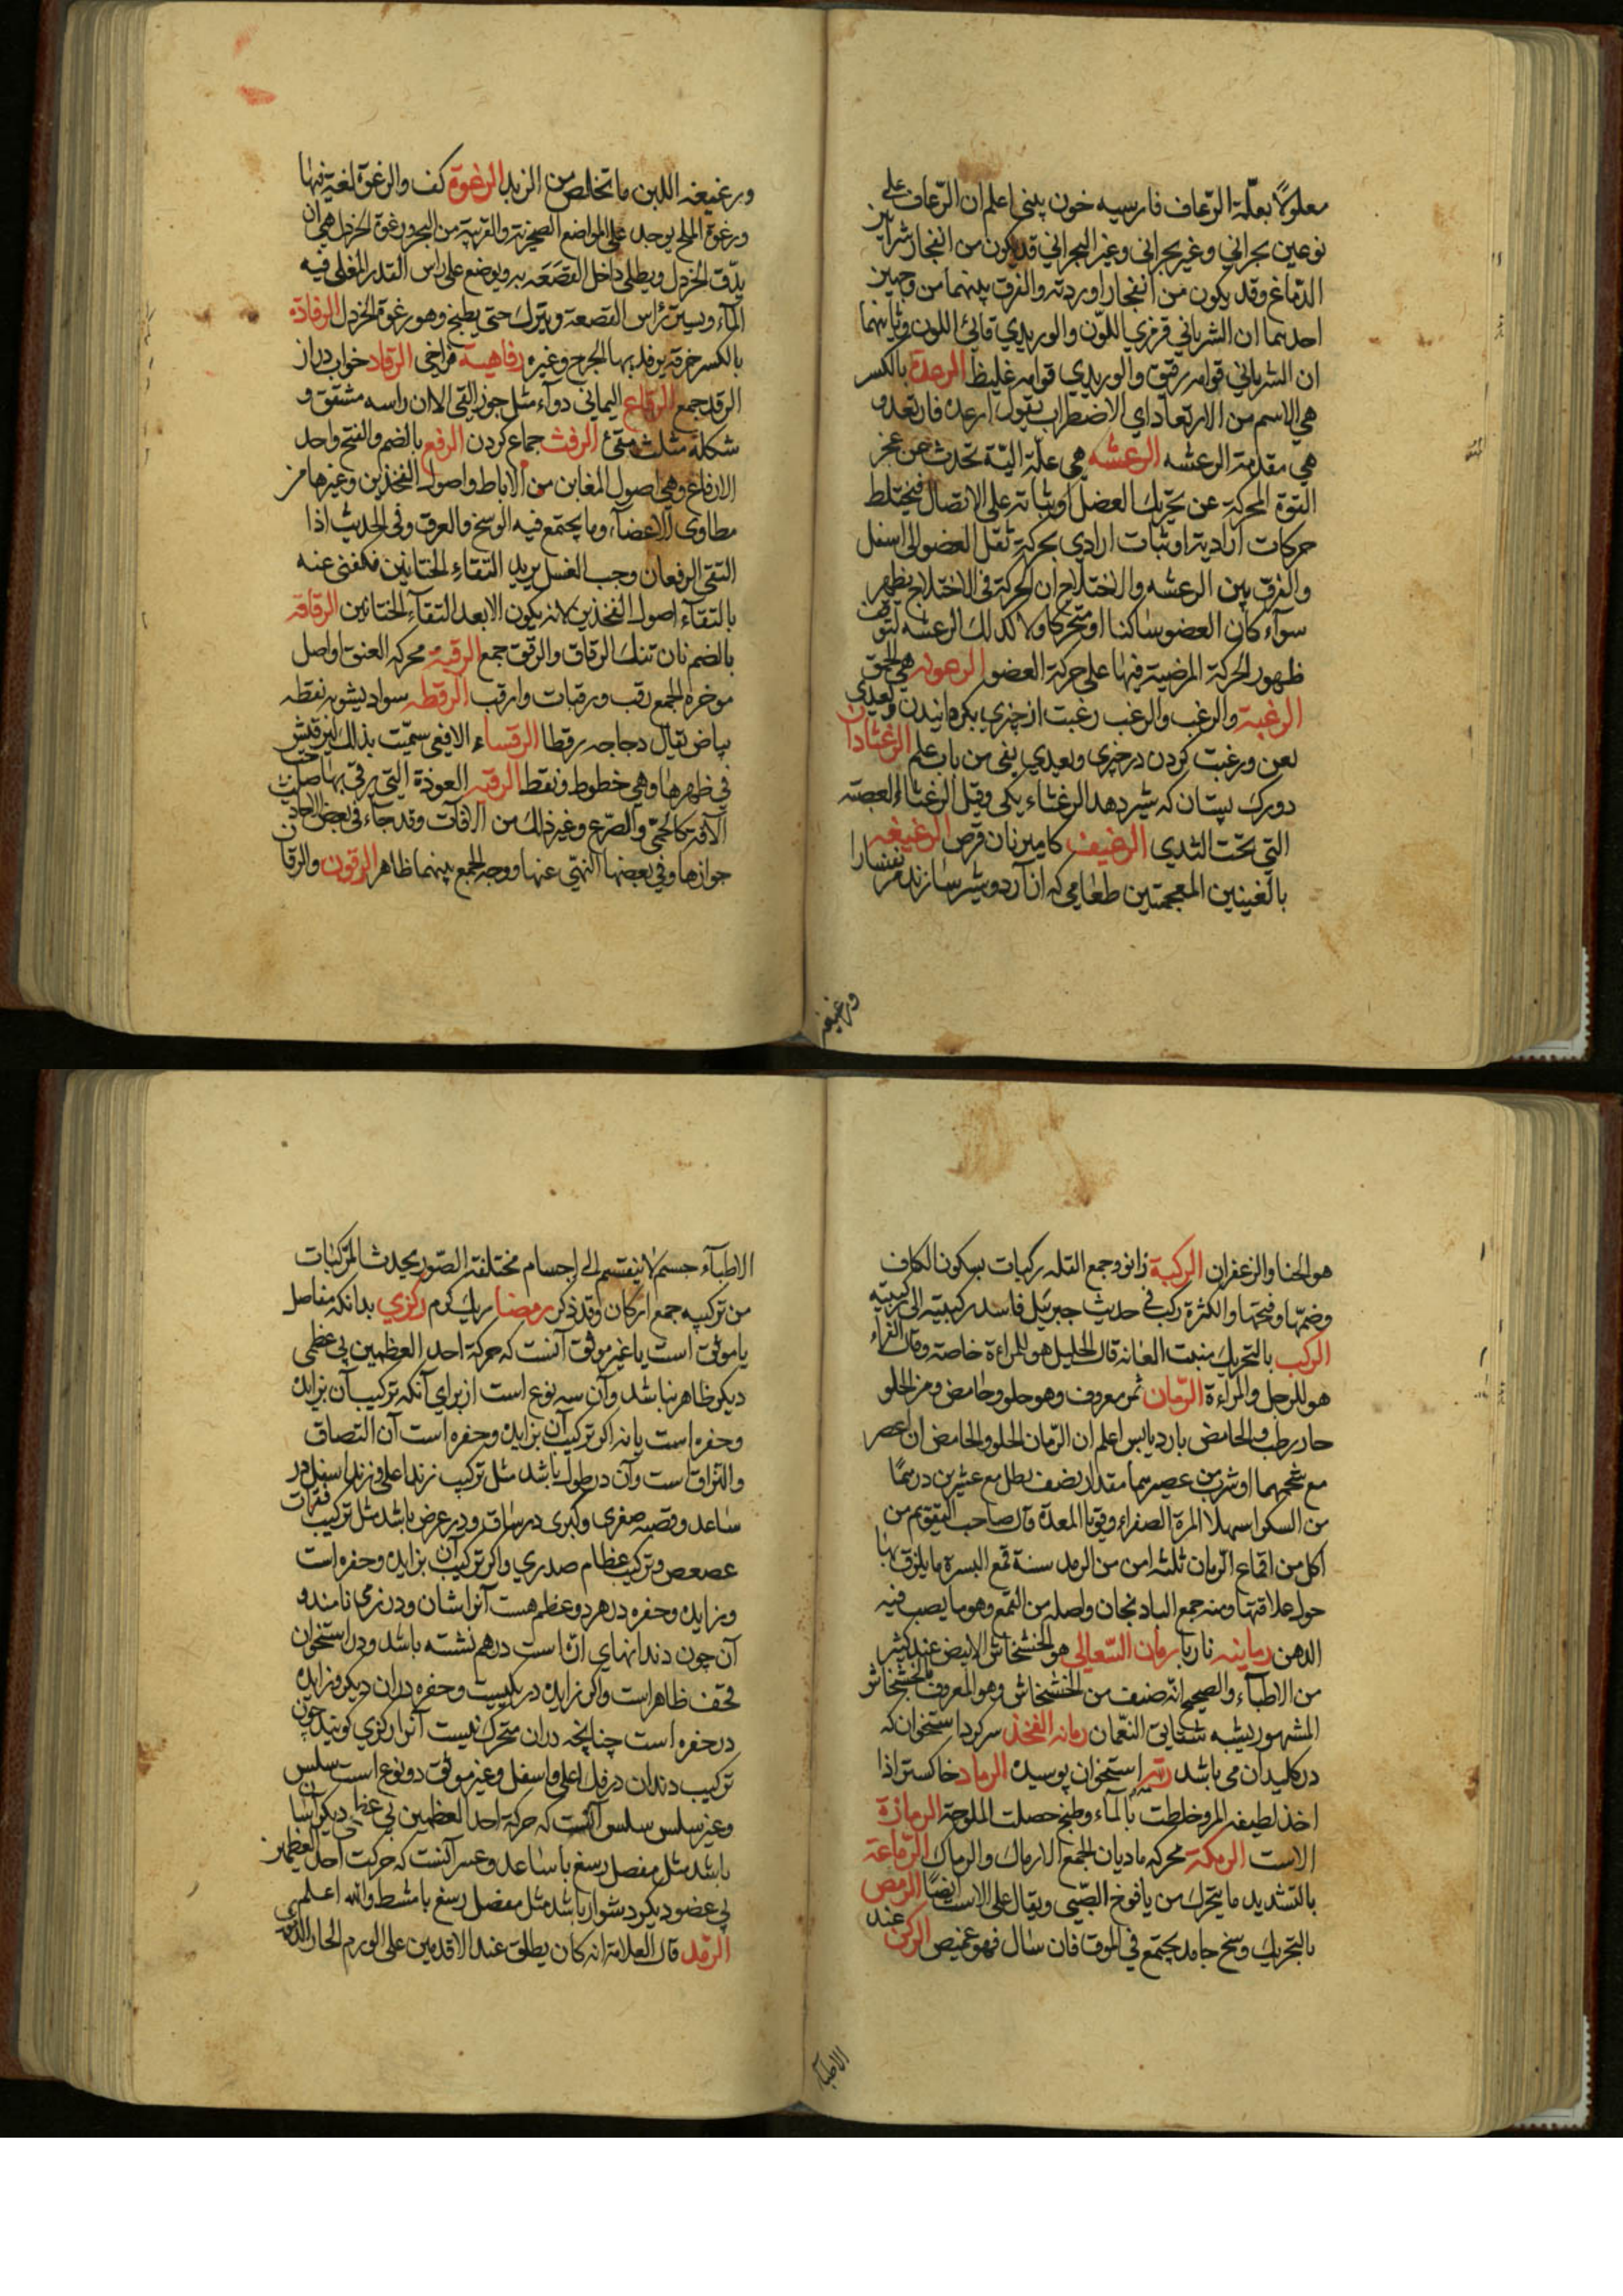 معلولاً بعلّة الرّعاف فارسیه خون بینی اعلم ان الرّعاف علی
نوعین بحرانی وغیر بحرانی وغیر البحرانی قد یکون من انفجار شرایین
الدّماغ وقد یکون من انفجار اوردته والفرق بینهما من وجهین
احدیهما ان الشریانی قرمزی اللّون والوریدی قانی اللون وثانیهما
ان الشریانی قوامه رقیق والوریدی قوامه غلیظ الرعدة بالکسر
هی الاسم من الارتعاد ای الاضطراب تقول ارعده فارتعد و
هی مقدمة الرعشه الرعشه هی علّة آلیّة تحدث عن عجز
القوة المحرکة عن تحریک العضل او ثباته علی الاتصال فیختلط
حرکات ارادیة او ثبات ارادی بحرکة ثقل العضو الی اسفل
والفرق بین الرعشه والاختلاج ان الحرکة فی الاختلاج یظهر
سوآء کان العضو ساکنا او متحرکا ولا کذلک الرعشه لتوقف
ظهور الحرکة المرضیة فیها علی حرکة العضو الرعونه هی الحمق
الرغبة والرغب والرغب رغبت از چیزی بکردانیدن ویعدی
بعن ورغبت کردن در چیزی ویعدی بفی من باب علم الرغثاوان
دو رک پستان که شیر دهد الرغثاء یکی وقیل الرغثاء العصبة
التی تحت الثدی الرغیف کامیر نان قرص الرغیغه
بالغینین المعجمتین طعامی که از آرد وشیر سازند نفسارا
ورغیغه
ورغیغه اللبن ما تخلص من الزبد الرغوة کف والرغوة لغیة فیها
ورغوة الملح یوجد علی المواضع الصخریة والقریبة من البحر ورغوة الخردل هی ان
یدّق الخردل ویطلی داخل القصعة به ویوضع علی راس القدر المغلی فیه
المآء ویستر رأس القصعة ویترک حتی یطبخ وهو رغوة الخردل الرفادة
بالکسر خرقة یرفد بها الجرح وغیره رفاهیه فراخی الرقاد خواب دراز
الرقد جمع الرقاع الیمانی دوآء مثل جوز القی الا ان راسه مشقق و
شکله مثلث مقئ الرفث جماع کردن الرفع بالضم والفتح واحد
الارفاغ وهی اصول المغابن من الاباط واصول الفخذین وغیرها من
مطاوی الاعضآء وما یجتمع فیه الوسخ والعرق وفی الحدیث اذا
التقی الرفغان وجب الغسل یرید التقاء الختانین فکنی عنه
بالتقآء اصول الفخذین لانه یکون الا بعد التقآء الختانین الرقاقة
بالضم نان تنک الرقاق والرقق جمع الرقبة محرکه العنق او اصل
موخره الجمع رقب ورقبات وارقب الرقطه سواد یشوبه نقطه
بیاض یقال دجاجه رقطا الرقساء الافعی سمّیت بذلک لترقیش
فی ظهرها وهی خطوط ونقط الرقیه العوذة التی یرقی بها صاحب
الآفة کالحمّی والصّرع وغیر ذلک من الآفات وقد جآء فی بعض الاحادیث
جوازها وفی بعضها النهی عنها ووجه الجمع بینهما ظاهر الرقون والرقان
هو الحنا والزعفران الرکبة زانو وجمع القله رکبات بسکون الکاف
وضمّها وفتحها والکثرة رکب فی حدیث جبرئیل فاسند رکبتیه الی رکبتیه
الرکب بالتحریک منبت العانه قال الخلیل هو للمراءة خاصة وقال الفراء
هو للرجل والمراءة الرّمان ثمر معروف وهو حلو وحامض ومز الحلو
حار رطب والحامض بارد یابس اعلم ان الرّمان الحلو والحامض ان اعصر
مع شحمهما او شرب من عصیرهما مقدار نصف رطل مع عشرین درهمًا
من السکر اسهلا المرة الصفراء وقویا المعدة قال صاحب التقویم من
اکل من اقماع الرّمان ثلثه امن من الرمد سنة قمع البسرة ما یلزق بها
حول علاقتها ومنه جمع البادنجان واصله من القمع وهو ما یصب فیه
الدهن رمانیه ناربا رمان السّعالی هو الخشخاش الابیض عند کثیر
من الاطبّآء والصحیح انّه صنف من الخشخاش وهو المعروف بالخشخاش
المشهور یشبه شقایق النّعمان رمانه الفخذ سرکرد استخوان که
در کلیدان می باشد رمّه استخوان پوسیده الرماد خاکستر اذا
اخذ لطیفه المر وخلطت بالمآء وطبخ حصلت الملوحة الرمازة
الاست الرمکة محرکه مادیان الجمع الارماک والرماک الرّماعة
بالتشدید ما یتحرک من یافوخ الصّبی ویقال علی الاست ایضًا الرمص
بالتحریک وسخ جامد یجتمع فی الموق فان سال فهو غمص الرکن عند
الاطبآء
الاطبآء جسم لا ینقسم الی اجسام مختلفة الصّور یحدث المرکبات
من ترکیبه جمع ارکان وقد ذکر رمضا ریک کرم رکزی بدانکه مفاصل
یا موثق است یا غیر موثق آنست که حرکة احد العظمین بی عظمی
دیکر ظاهر نباشد وآن سه نوع است از برای آنکه ترکیب آن بزایده
وحفره است یا نه اکر ترکیب آن بزایده وحفره است آن التصاق
والتزاق است وآن در طول باشد مثل ترکیب زند اعلی وزند اسفل در
ساعد وقصبه صغری وکبری در ساق ودر عرض باشد مثل ترکیب فقرات
عصعص وترکیب عظام صدری واکر ترکیب آن بزایده وحفره است
وزایده وحفره در هر دو عظم هست آنرا شان ودرزمی نامند و
آن چون دندانهای ارّه است درهم نشسته باشد ودر استخوان
قحف ظاهر است واکر زایده در یکیست وحفره در آن دیکر وزایده
در حفره است چنانچه در آن متحرک نیست آنرا رکزی کویند چون
ترکیب دندان در فک اعلی واسفل وغیر موثق دو نوع است سلس
وغیر سلس سلس آنست که حرکة احد العظمین بی عظمی دیکر آسان
باشد مثل مفصل رسغ با ساعد وعسر آنست که حرکت احد العظمین
بی عضو دیکر دشوار باشد مثل مفصل رسغ با مشط والله اعلم
الرّمد قال العلامة انه کان یطلق عند الاقدمین علی الورم الحار الدموی